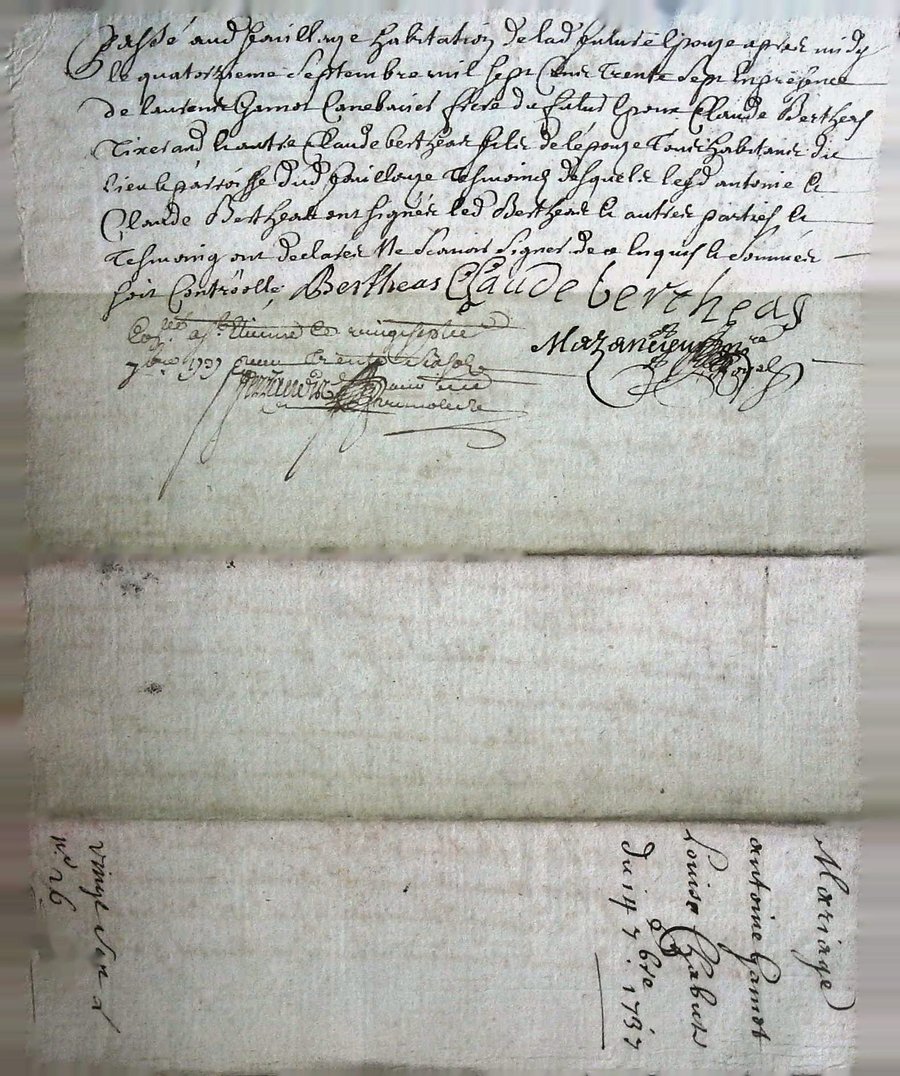 Passé aud Jouillage habitation de lad future Epouze apres midy
le quatorzieme Septembre mil Sept Cens Trente Sept En presence
de laurens Gamot frere du futur Epoux Claude Bertheas
Tixerand & autre Claude bertheas fils de lépouze Tous habitans du
Lieu & parroisse dud Jouillage Tesmoings desquels lesd antoine &
Claude Bertheas ont signés led Bertheas & autres parties &
Tesmoing ont declarer Ne Scavoir Signer de ce Enquis & Sommés
Soit Contrôollé, Bertheas Claude bertheas
a St. Etienne Le vingtsept
7bre 1737
Mazancieux Nre
Royal
Mariage
antoine Gamot
Louise Chabus
Du 14 7.bre 1737
vingt
N.º 26